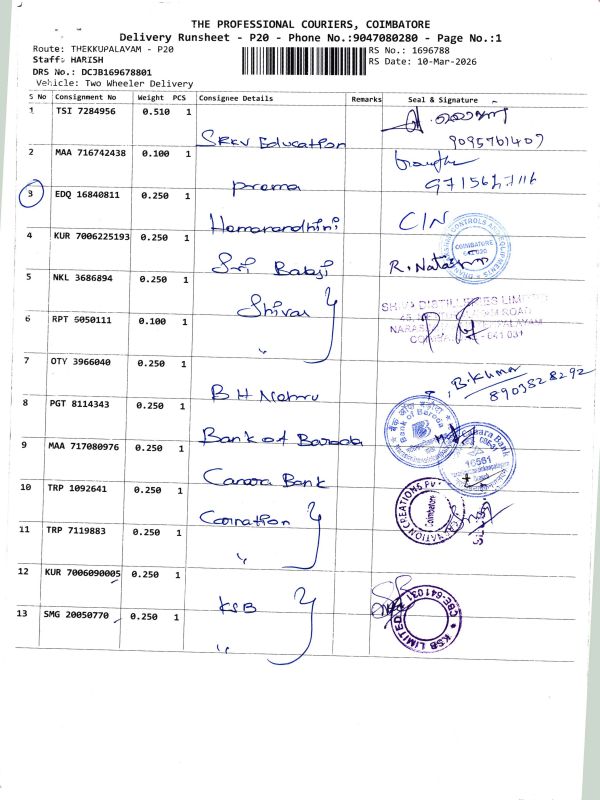 THE PROFESSIONAL COURIERS, COIMBATORE
Delivery Runsheet - P20 - Phone No.:9047080280 - Page No.:1
Route: THEKKUPALAYAM - P20
RS No.: 1696788
Staff: HARISH
RS Date: 10-Mar-2026
DRS No.: DCJB169678801
Vehicle: Two Wheeler Delivery
S No Consignment No Weight PCS Consignee Details Remarks Seal & Signature
1 TSI 7284956 0.510 1 SRKV Education
9095761409
2 MAA 716742438 0.100 1 Prema
3 EDQ 16840811 0.250 1 CIN
4 KUR 7006225193 0.250 1 Sri Balaji R. Natarajan
COIMBATORE
5 NKL 3686894 0.250 1 Shiva
SHIVA DISTILLERIES LIMITED
6 RPT 5050111 0.100 1 "
7 OTY 3966040 0.250 1 B H Nehru B. Kumar
8903528292
8 PGT 8114343 0.250 1 Bank of Baroda
Bank of Baroda
9 MAA 717080976 0.250 1 Canara Bank
Canara Bank
16561
10 TRP 1092641 0.250 1
Coimbatore
11 TRP 7119883 0.250 1 "
12 KUR 7006090005 0.250 1 KSB
13 SMG 20050770 0.250 1 "
KSB LIMITED CBE-641031